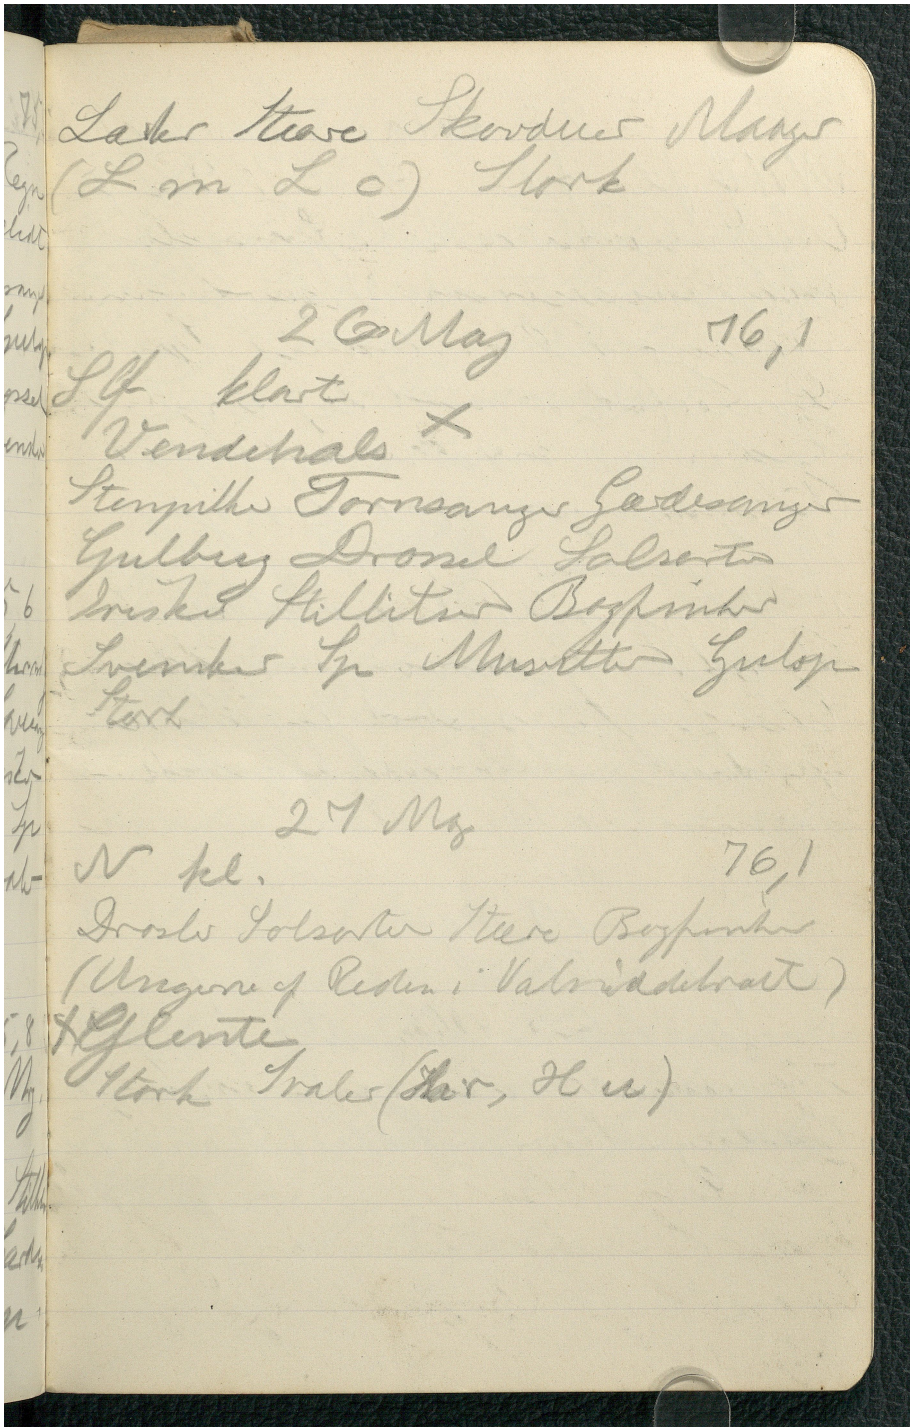 Lærker Stære Skovduer Maager
(L m L c) Stork
26 Maj 76,1
S Ø klart
Vendehals X
Stenpikke Tornsanger Gærdesanger
Gulbug Drossel Solsorte
Iriske Stillitser Bogfinker
Svensker Sp Musvitter Gulsp
Stork
27 Maj
N kl. 76,1
Drosler Solsorter Stære Bogfinker
(Ungerne af Reden i Valnøddetræet)
Glente
Stork Svaler (Hu)